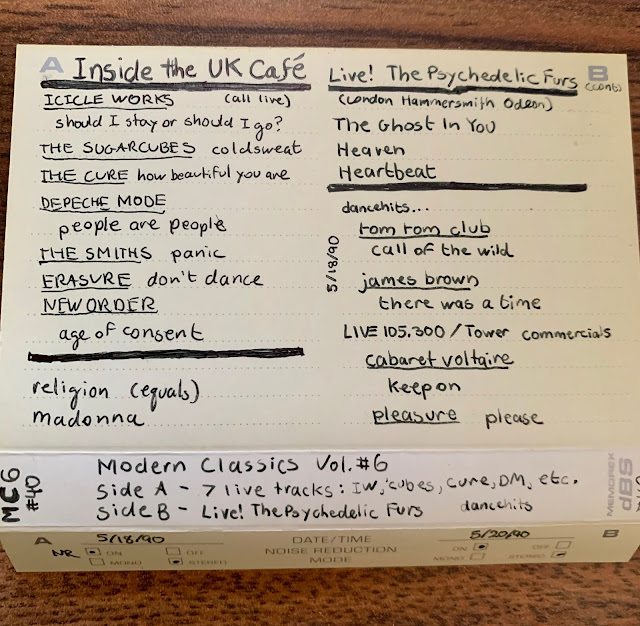 A Inside the UK Café
ICICLE WORKS (all live)
should I stay or should I go?
THE SUGARCUBES coldsweat
THE CURE how beautiful you are
DEPECHE MODE
people are people
THE SMITHS panic
ERASURE don't dance
NEW ORDER
age of consent
religion (equals)
madonna
Live! The Psychedelic Furs B (cont)
(London Hammersmith Odeon)
The Ghost In You
Heaven
Heartbeat
5/18/90
dancehits...
tom tom club
call of the wild
james brown
there was a time
LIVE 105.300 / Tower commercials
cabaret voltaire
keep on
pleasure please
MC6
#40
Modern Classics Vol. #6
Side A - 7 live tracks: IW, 'cubes, Cure, DM, etc.
Side B - Live! The Psychedelic Furs dancehits
MEMOREX
dBS
A 5/18/90 DATE/TIME 5/20/90 B
NR ON OFF NOISE REDUCTION ON OFF
MONO STEREO MODE MONO STEREO